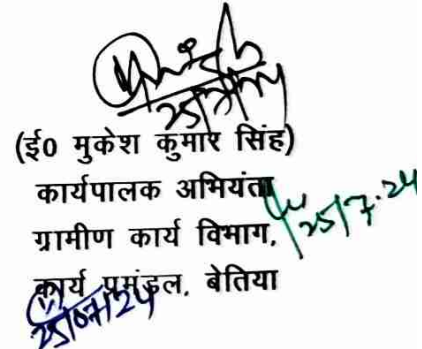 25/7/24
(ई० मुकेश कुमार सिंह)
कार्यपालक अभियंता
25/7.24
ग्रामीण कार्य विभाग,
कार्य प्रमंडल, बेतिया
25/07/24